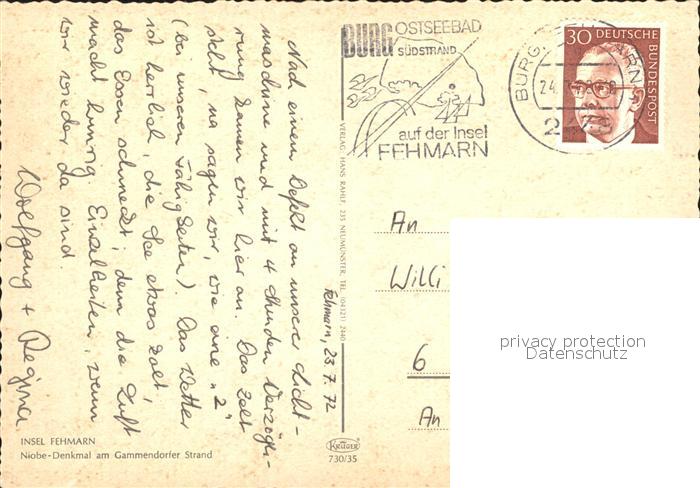 Fehmarn, 23.7.72
Nach einem Defekt an unserer Licht-
maschine und mit 4 Stunden Verzöge-
rung kamen wir hier an. Das Zelt
steht, na sagen wir, wie eine „2"
(bei unseren Fähigkeiten). Das Wetter
ist herrlich, die See etwas kalt,
das Essen schmeckt, denn die Luft
macht hungrig. Einzelheiten, wenn
wir wieder da sind.
Wolfgang + Regina
INSEL FEHMARN
Niobe-Denkmal am Gammendorfer Strand
VERLAG HANS RAHLF, 235 NEUMÜNSTER, TEL. (04321) 2440
KRÜGER
730/35
BURG OSTSEEBAD
SÜDSTRAND
auf der Insel
FEHMARN
BURG
24.
30 DEUTSCHE
BUNDESPOST
An
Willi
6
An
privacy protection
Datenschutz